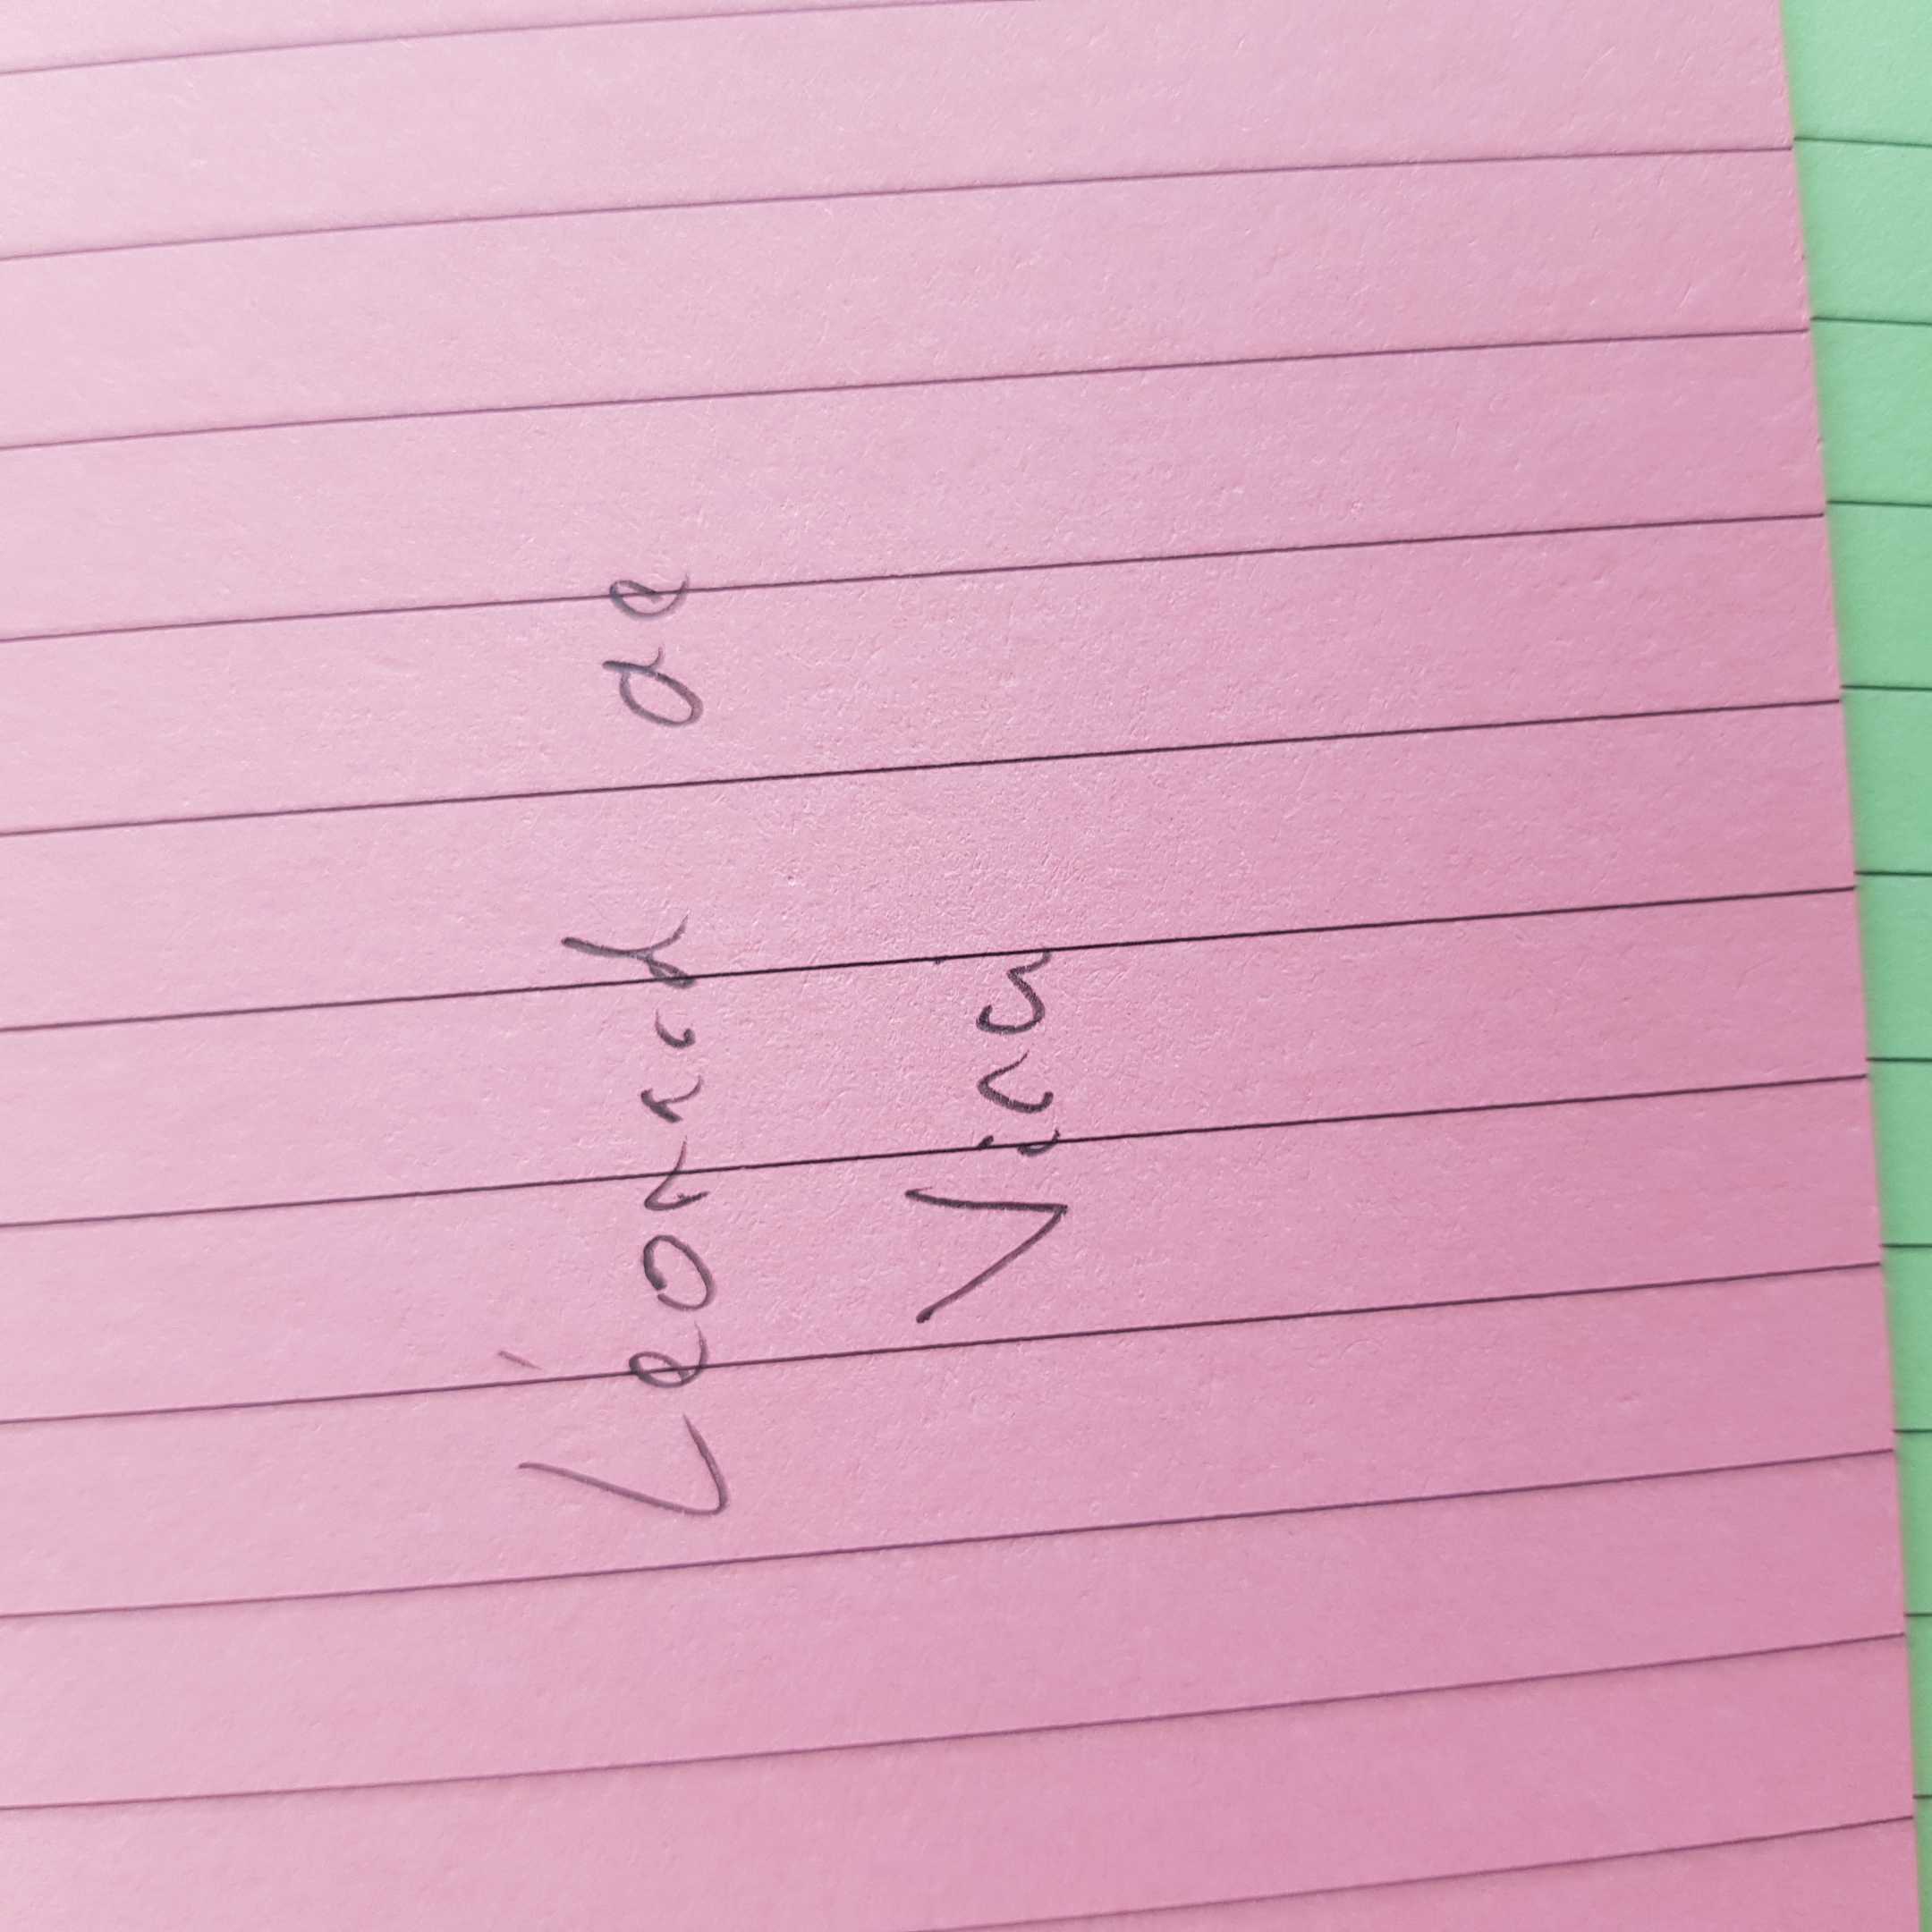 Léonard de
Vinci